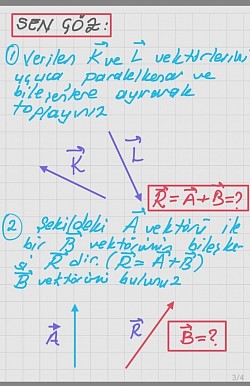 SEN ÇÖZ:
① Verilen K⃗ ve L⃗ vektörlerini
uçuca paralelkenar ve
bileşenlere ayırarak
toplayınız
K⃗ L⃗
R⃗ = A⃗ + B⃗ = ?
② Şekildeki A⃗ vektörü ile
bir B⃗ vektörünün bileşke-
si R⃗ dir. (R⃗ = A⃗ + B⃗)
B⃗ vektörünü bulunuz
A⃗ R⃗ B⃗ = ?
3/4